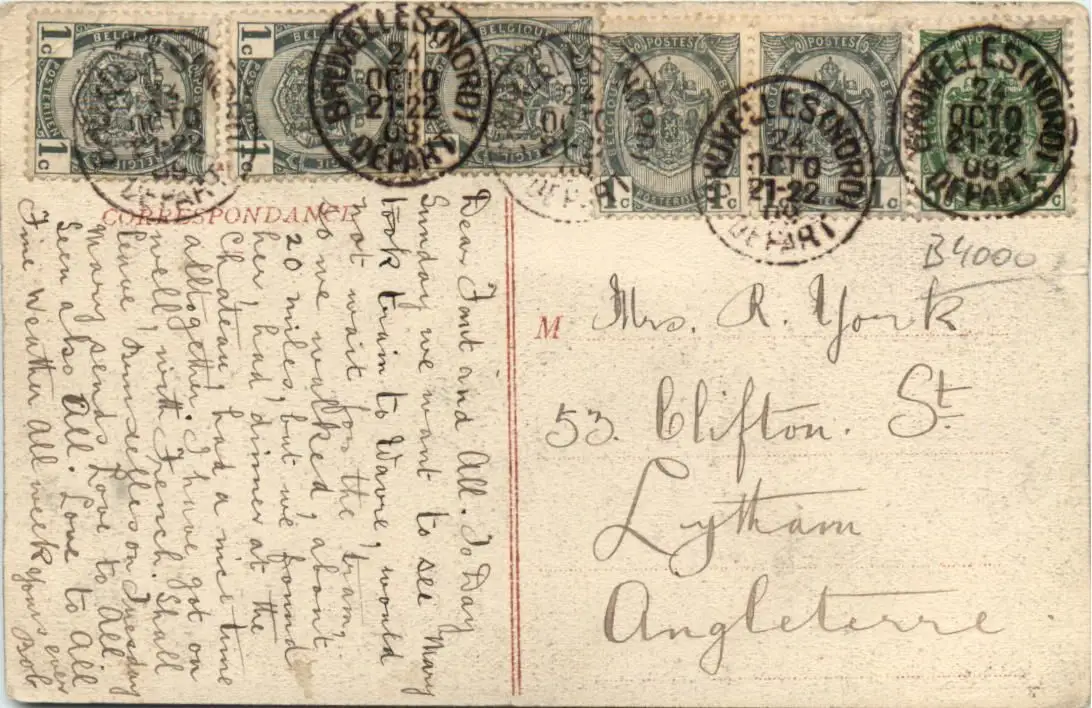 1c BELGIQUE 1c
1c BELGIQUE
BELGIQUE
POSTES
POSTES
1c
1c
1c
5c
BRUXELLES (NORD)
24
OCTO
21-22
09
DEPART
BRUXELLES (NORD)
24
OCTO
21-22
09
DEPART
BRUXELLES (NORD)
24
OCTO
21-22
09
DEPART
BRUXELLES (NORD)
24
OCTO
21-22
09
DEPART
BRUXELLES (NORD)
24
OCTO
21-22
09
DEPART
CORRESPONDANCE
Dear Font and All. To Day
Sunday we want to see Mary
took train to Wavre, would
not wait for the tram,
so we walked, about
20 miles, but we found
her, had dinner at the
Chateau, had a nice time
alltogether. I have got on
well, with French. Shall
leave Brussells on Tuesday
Mary sends Love to All.
Seen also All. Love to All
Fine Weather All week yours ever
Bob
B4000
M Mrs. R. York
53. Clifton. St.
Lytham
Angleterre